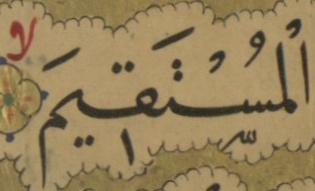 لا
الْمُسْتَقٖيمَ